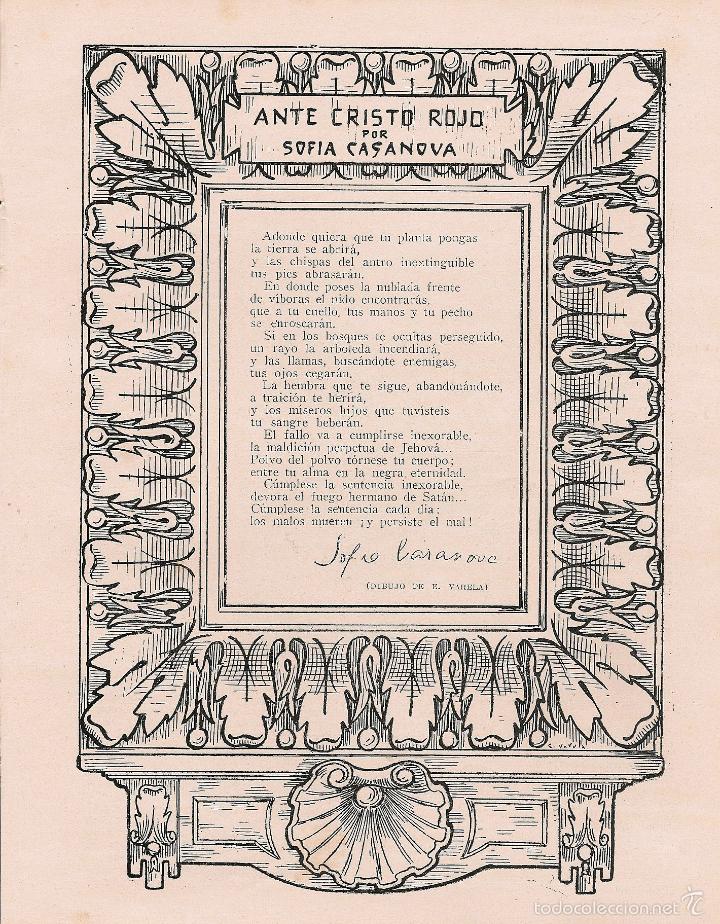 ANTE CRISTO ROJO
POR
SOFIA CASANOVA
Adonde quiera que tu planta pongas
la tierra se abrirá,
y las chispas del antro inextinguible
tus pies abrasarán.
En donde poses la nublada frente
de víboras el nido encontrarás,
que a tu cuello, tus manos y tu pecho
se enroscarán.
Si en los bosques te ocultas perseguido,
un rayo la arboleda incendiará,
y las llamas, buscándote enemigas,
tus ojos cegarán.
La hembra que te sigue, abandonándote,
a traición te herirá,
y los míseros hijos que tuvisteis
tu sangre beberán.
El fallo va a cumplirse inexorable,
la maldición perpetua de Jehová...
Polvo del polvo tórnese tu cuerpo;
entre tu alma en la negra eternidad.
Cúmplese la sentencia inexorable,
devora el fuego hermano de Satán...
Cúmplese la sentencia cada día:
los malos mueren ¡y persiste el mal!
Sofía Casanova
(DIBUJO DE E. VARELA)
E. VARELA
todocoleccion.net